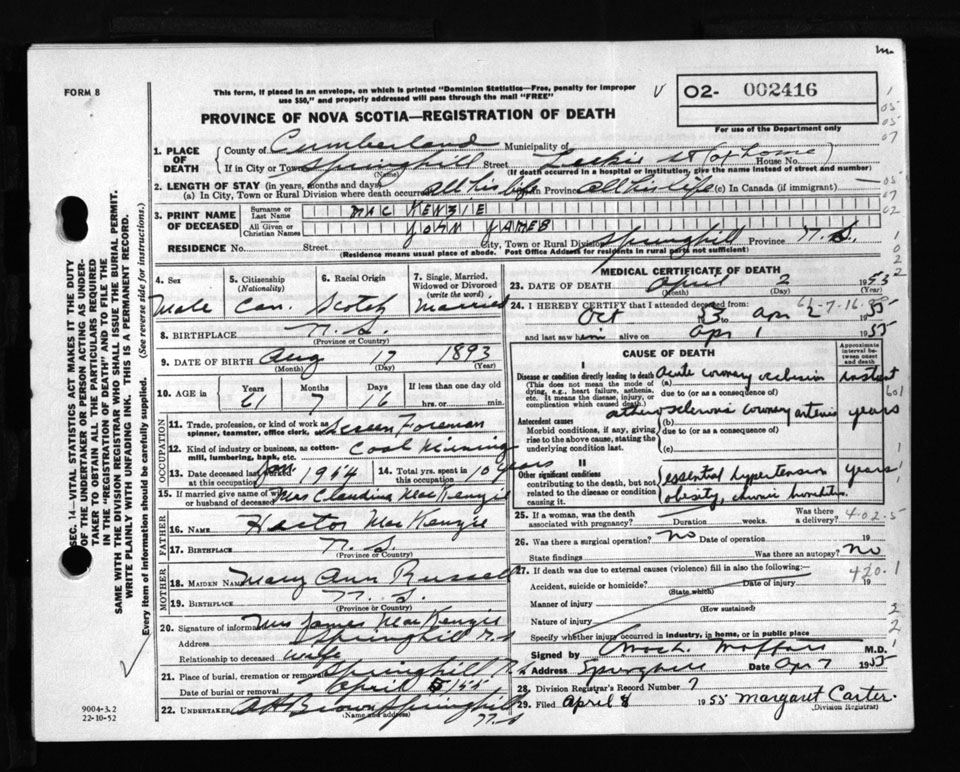 m.
FORM 8
This form, if placed in an envelope, on which is printed "Dominion Statistics—Free, penalty for improper
use $50," and properly addressed will pass through the mail "FREE"
V
O2- 002416
For use of the Department only
PROVINCE OF NOVA SCOTIA—REGISTRATION OF DEATH
1. PLACE OF DEATH
County of Cumberland Municipality of
If in City or Town Springhill Street Leckie St (at home) House No.
(Name) (If death occurred in a hospital or institution, give the name instead of street and number)
2. LENGTH OF STAY (in years, months and days)
(a) In City, Town or Rural Division where death occurred all his life in Province all his life (c) In Canada (if immigrant)
3. PRINT NAME OF DECEASED
Surname or Last Name MAC KENZIE
All Given or Christian Names JOHN JAMES
RESIDENCE No. Street City, Town or Rural Division Springhill Province N.S.
(Residence means usual place of abode. Post Office Address for residents in rural parts not sufficient)
SEC. 14—VITAL STATISTICS ACT MAKES IT THE DUTY
OF THE UNDERTAKER OR PERSON ACTING AS UNDER-
TAKER TO OBTAIN ALL THE PARTICULARS REQUIRED
IN THE "REGISTRATION OF DEATH" AND TO FILE THE
SAME WITH THE DIVISION REGISTRAR WHO SHALL ISSUE THE BURIAL PERMIT.
WRITE PLAINLY WITH UNFADING INK. THIS IS A PERMANENT RECORD.
Every item of information should be carefully supplied. (See reverse side for instructions.)
4. Sex 5. Citizenship (Nationality) 6. Racial Origin 7. Single, Married, Widowed or Divorced (write the word)
Male Can. Scotch Married
8. BIRTHPLACE N.S.
(Province or Country)
9. DATE OF BIRTH Aug 17 1893
(Month) (Day) (Year)
10. AGE in Years Months Days If less than one day old
61 7 16 hrs. or min.
OCCUPATION
11. Trade, profession or kind of work as spinner, teamster, office clerk, etc. Screen Foreman
12. Kind of industry or business, as cotten-mill, lumbering, bank, etc. Coal Mining
13. Date deceased last worked at this occupation Jan 1954 14. Total yrs. spent in this occupation 10 years
15. If married give name of wife or husband of deceased Mrs Claudina MacKenzie
FATHER
16. NAME Hector MacKenzie
17. BIRTHPLACE N.S.
(Province or Country)
MOTHER
18. MAIDEN NAME Mary Ann Russell
19. BIRTHPLACE N.S.
(Province or Country)
20. Signature of informant Mrs James MacKenzie
Address Springhill N.S
Relationship to deceased wife
21. Place of burial, cremation or removal Springhill N.S
Date of burial or removal April 5/55
22. UNDERTAKER A H Brown Springhill
(Name and address) N.S
9004-3.2
22-10-52
MEDICAL CERTIFICATE OF DEATH
23. DATE OF DEATH April 2 1955
(Month) (Day) (Year)
24. I HEREBY CERTIFY that I attended deceased from:
61-7-16
Oct 53 to Apr 2 1955
and last saw him alive on Apr 1 1955
CAUSE OF DEATH
Approximate interval between onset and death
I
Disease or condition directly leading to death (a) Acute coronary occlusion instant
(This does not mean the mode of dying, e.g., heart failure, asthenia, etc. It means the disease, injury, or complication which caused death.)
due to (or as a consequence of)
Antecedent causes (b) atherosclerosis coronary arteries years
Morbid conditions, if any, giving rise to the above cause, stating the underlying condition last.
due to (or as a consequence of)
(c)
II
Other significant conditions contributing to the death, but not related to the disease or condition causing it.
essential hypertension years
obesity, chronic bronchitis.
25. If a woman, was the death associated with pregnancy? Duration weeks. Was there a delivery? 4-02-5
26. Was there a surgical operation? no Date of operation 19
State findings Was there an autopsy? no
27. If death was due to external causes (violence) fill in also the following:— 420.1
Accident, suicide or homicide? Date of injury 19
(State which)
Manner of injury
(How sustained)
Nature of injury
Specify whether injury occurred in industry, in home, or in public place
Signed by M.D.
Address Springhill Date Apr 7 1955
28. Division Registrar's Record Number 7
29. Filed April 8 1955 Margaret Carter.
(Division Registrar)